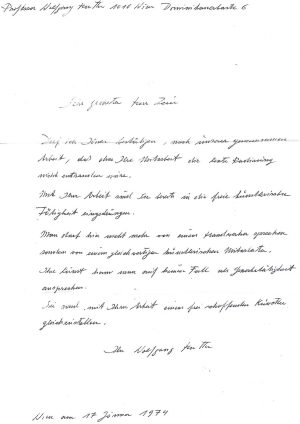 Professor Wolfgang Hutter 1010 Wien Dominikanerbastei 6
Sehr geehrter Herr
Darf ich Ihnen bestätigen, nach unserer gemeinsamen
Arbeit, daß ohne Ihre Mitarbeit die
nicht entstanden wäre.
Mit Ihrer Arbeit sind Sie bereits in die freie künstlerische
Tätigkeit eingedrungen.
Man darf hier nicht mehr von einem Handwerker sprechen
sondern von einem gleichwertigen künstlerischen Mitarbeiter.
Ihre kann man auf keinen Fall als
ansprechen.
Sie sind mit Ihrer Arbeit einem frei schaffenden Künstler
gleichzustellen.
Ihr Wolfgang Hutter
Wien am 17 Jänner 1974